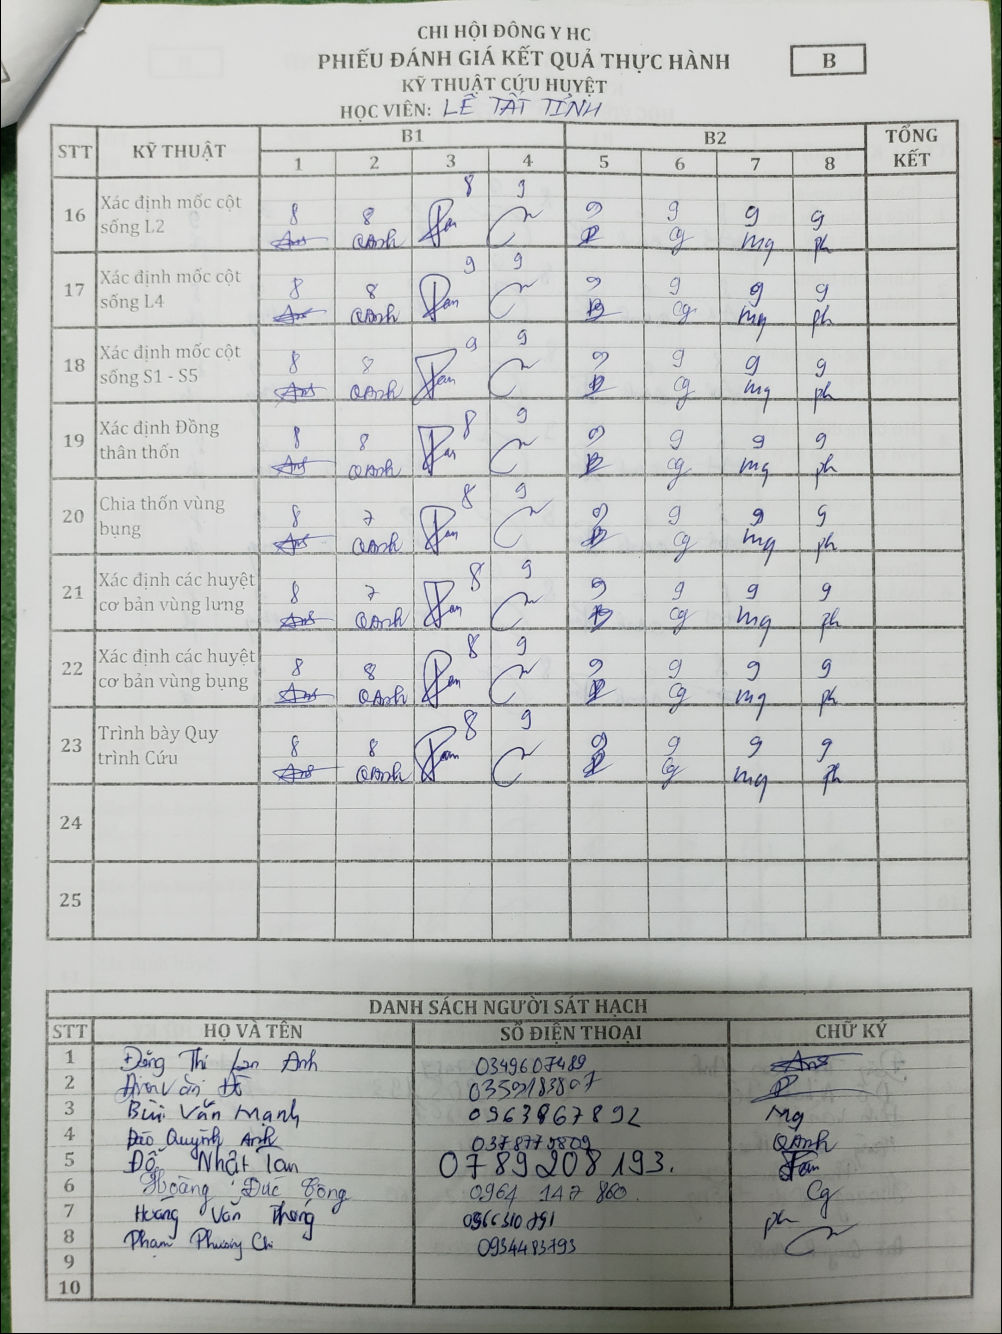 CHI HỘI ĐÔNG Y HC
PHIẾU ĐÁNH GIÁ KẾT QUẢ THỰC HÀNH
B
KỸ THUẬT CỨU HUYỆT
HỌC VIÊN: LÊ TẤT TỈNH
STT KỸ THUẬT B1 B2 TỔNG KẾT
1 2 3 4 5 6 7 8
16 Xác định mốc cột sống L2 8 8 8 9 9 9 9 9
QAnh Tan Cg Mq ph
17 Xác định mốc cột sống L4 8 8 9 9 9 9 9 9
QAnh Tan Cg Mq ph
18 Xác định mốc cột sống S1 - S5 8 8 9 9 9 9 9 9
QAnh Tan Cg Mq ph
19 Xác định Đồng thân thốn 8 8 8 9 9 9 9 9
QAnh Tan Cg Mq ph
20 Chia thốn vùng bụng 8 7 8 9 9 9 9 9
QAnh Tan Cg Mq ph
21 Xác định các huyệt cơ bản vùng lưng 8 7 8 9 9 9 9 9
QAnh Tan Cg Mq ph
22 Xác định các huyệt cơ bản vùng bụng 8 8 8 9 9 9 9 9
QAnh Tan Cg Mq ph
23 Trình bày Quy trình Cứu 8 8 8 9 9 9 9 9
QAnh Tan Cg Mq ph
24
25
DANH SÁCH NGƯỜI SÁT HẠCH
STT HỌ VÀ TÊN SỐ ĐIỆN THOẠI CHỮ KÝ
1 Đặng Thị Lan Anh 0349607489
2 Đinh Văn Đô
3 Bùi Văn Mạnh 0963867892 Mq
4 Đào Quỳnh Anh 0378779809 QAnh
5 Đỗ Nhật Tân 0789208193. Tan
6 Hoàng Đức Công 0964 147 860. Cg
7 Hoàng Văn Phong 0966310791 ph
8 Phạm Phương Chi 0934483793
9
10